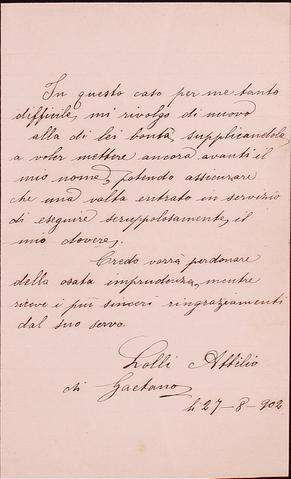 In questo caso per me tanto
difficile, mi rivolgo di nuovo
alla di lei bontà, supplicandola
a voler mettere ancora avanti il
mio nome, potendo assicurare
che una volta entrato in servizio
di eseguire scruppolosamente, il
mio dovere,.
Credo vorrà perdonare
della osata imprudenza, mentre
riceve i più sinceri ringraziamenti
dal suo servo.
Lolli Attilio
di Gaetano
li 27-8-902